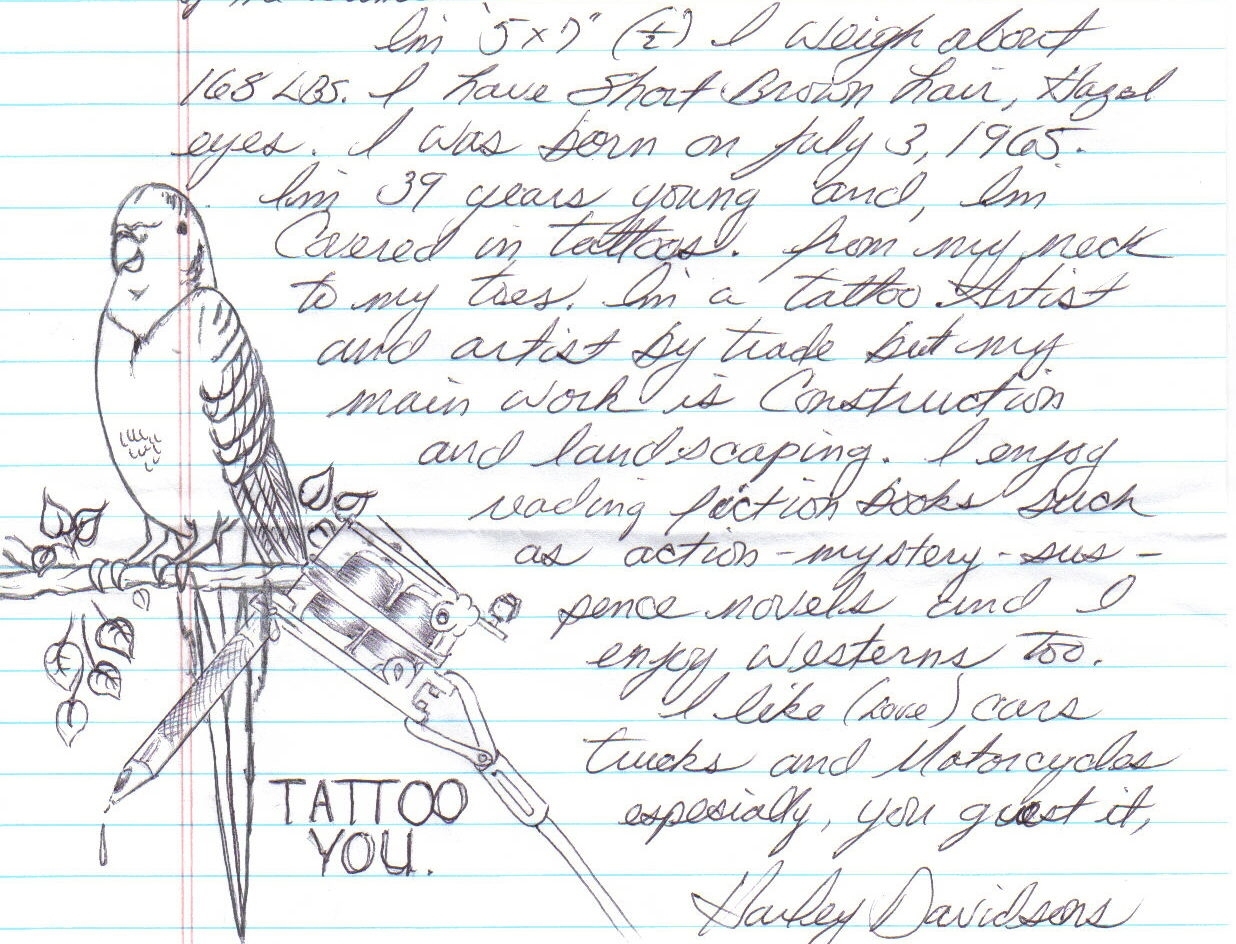 of the
Im '5x7" (½) I weigh about
168 LBS. I have Short Brown hair, Hazel
eyes. I was born on July 3, 1965.
Im 39 years young and, Im
Covered in tattoos. from my neck
to my toes. Im a tattoo Artist
and artist by trade but my
main work is Construction
and landscaping. I enjoy
reading fiction books such
as action - mystery - sus -
pence novels and I
enjoy westerns too.
I like (Love) cars
trucks and Motorcycles
especially, you guest it,
Harley Davidsons
TATTOO
YOU.